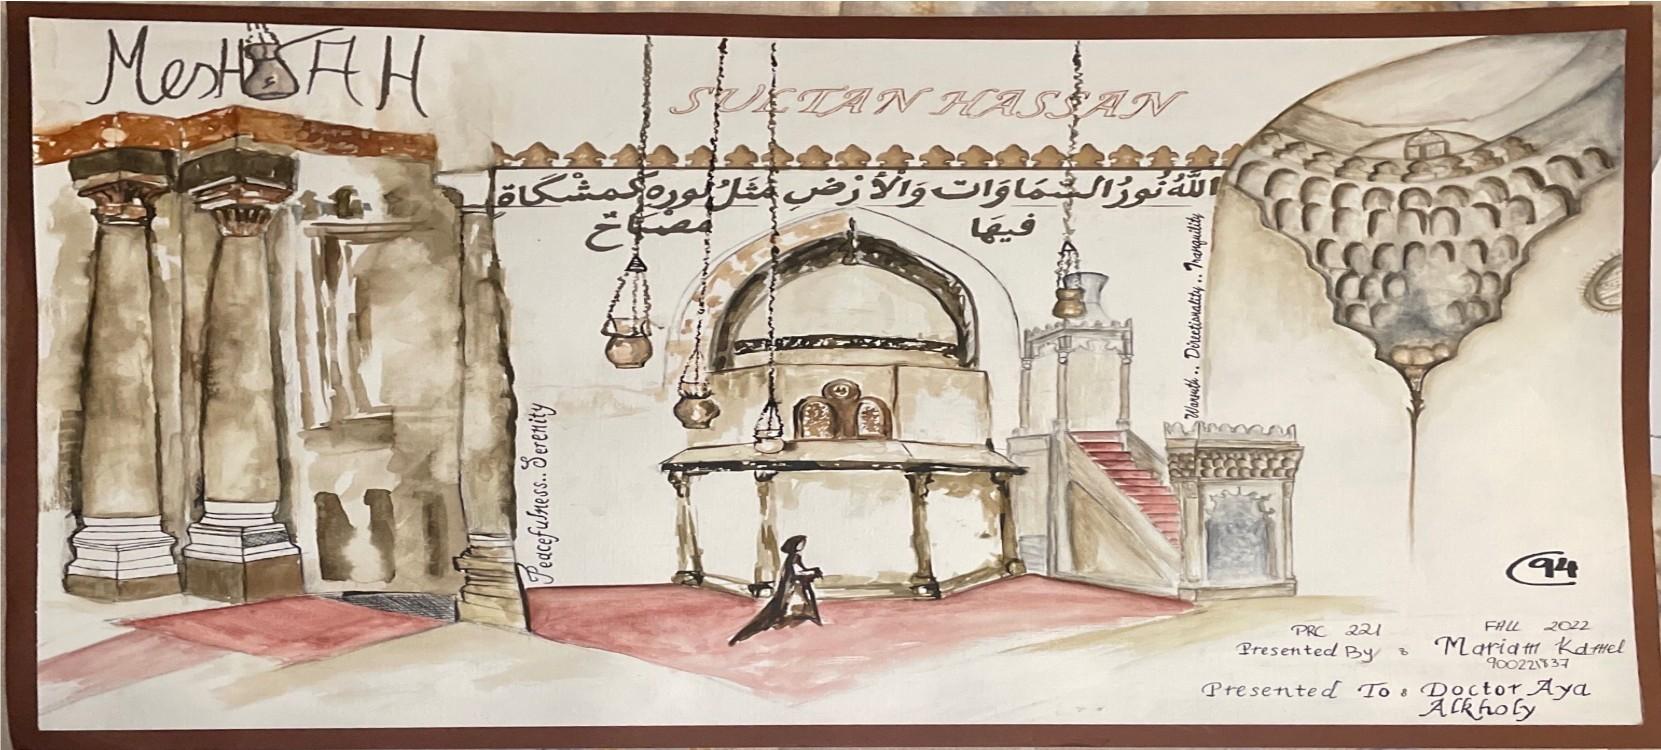 MeshKAH
SULTAN HASSAN
اللَّهُ نُورُ السَّمَاوَاتِ وَالْأَرْضِ مَثَلُ نُورِهِ كَمِشْكَاةٍ
فِيهَا مِصْبَاحٌ
Peacefulness.. Serenity
Warmth.. Directionality.. Tranquility
94
PRC 221 FALL 2022
Presented By : Mariam Kamel
900221837
Presented To : Doctor Aya
Alkholy